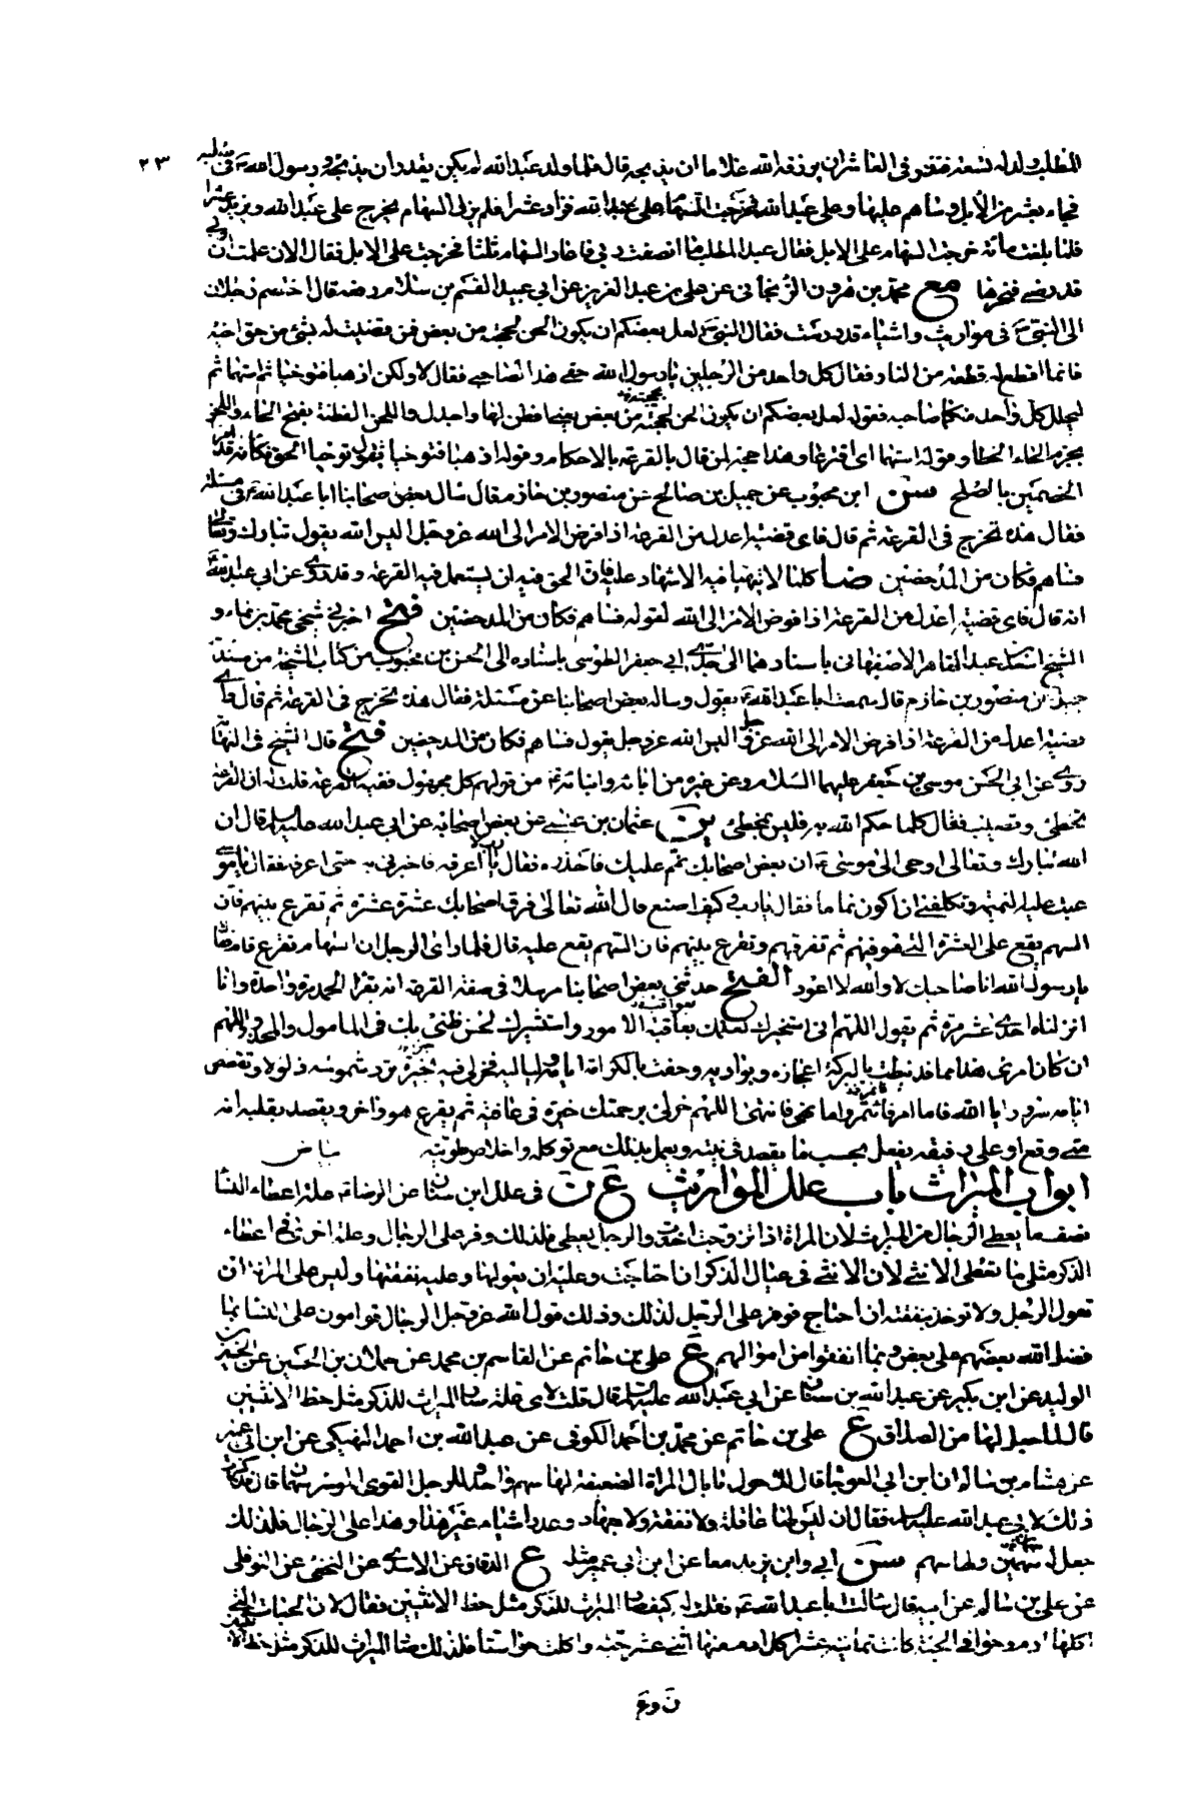 ٢٣
المطلب ولد له تسعة فنذر في العاشر ان يرزقه الله غلاما ان يذبحه قال فلما ولد عبدالله لم يكن يقدر ان يذبحه ورسول الله ص في صلبه
فجاء بعشر من الإبل وساهم عليها وعلى عبدالله فخرجت السهام على عبدالله فزاد عشرا فلم يزل السهام يخرج على عبدالله ويزيد عشرا
فلما بلغت مائة خرجت السهام على الابل فقال عبدالمطلب ما انصفت ربي فاعاد السهام ثلثا فخرجت على الابل فقال الان علمت ان ربي
قد رضي فنحرها مع محمد بن هرون الزنجاني عن علي بن عبدالعزيز عن ابي عبيد القسم بن سلام رفعه قال اختصم رجلان
الى النبي ص في مواريث واشياء قد درست فقال النبي ص لعل بعضكم ان يكون الحن بحجته من بعض فمن قضيت له بشئ من حق اخيه
فانما اقطع له قطعة من النار فقال كل واحد من الرجلين يا رسول الله حقي هذا لصاحبي فقال لا ولكن اذهبا فتوخيا ثم استهما ثم
ليحلل كل واحد منكما صاحبه فقوله لعل بعضكم ان يكون الحن بحجته من بعض يعني افطن لها واجدل واللحن الفطنة بفتح الحاء واللحن
بجزم الحاء الخطأ وقوله استهما اي اقترعا وهذا حجة لمن قال بالقرعة بالاحكام وقوله اذهبا فتوخيا يقول توخيا الحق فكانه قد امر
الخصمين بالصلح سن ابن محبوب عن جميل بن صالح عن منصور بن حازم قال سال بعض اصحابنا ابا عبدالله ع في مسئلة
فقال هذه تخرج في القرعة ثم قال فاي قضية اعدل من القرعة اذا فوض الامر الى الله عز وجل اليس الله يقول تبارك وتعالى
فساهم فكان من المدحضين ضا كلما لا يتهيا فيه الاشهاد عليه فان الحق فيه ان يستعمل فيه القرعة وقد روي عن ابي عبدالله ع
انه قال فاي قضية اعدل من القرعة اذا فوض الامر الى الله لقوله فساهم فكان من المدحضين فتح اخبرني شيخي محمد بن نماء و
الشيخ اسعد بن عبدالقاهر الاصفهاني باسنادهما الى جدي ابي جعفر الطوسي باسناده الى الحسن بن محبوب من كتاب المشيخة من مسند
جميل عن منصور بن حازم قال سمعت ابا عبدالله ع يقول وساله بعض اصحابنا عن مسئلة فقال هذه تخرج في القرعة ثم قال واي
قضية اعدل من القرعة اذا فوض الامر الى الله عز وجل اليس الله عز وجل يقول فساهم فكان من المدحضين فتح قال الشيخ في النهاية
روي عن ابي الحسن موسى بن جعفر عليهما السلام وعن غيره من ابائه وابنائه ع من قولهم كل مجهول ففيه القرعة قلت له ان القرعة
تخطئ وتصيب فقال كلما حكم الله به فليس بمخطئ ين عثمان بن عيسى عن بعض اصحابه عن ابي عبدالله عليه السلم قال ان
الله تبارك وتعالى اوحى الى موسى ع ان بعض اصحابك ينم عليك فاحذره فقال يا رب لا اعرفه فاخبرني به حتى اعرفه فقال يا موسى
عبت عليه النميمة وتكلفني ان اكون نماما فقال يا رب وكيف اصنع قال الله تعالى فرق اصحابك عشرة عشرة ثم تقرع بينهم فان
السهم يقع على العشرة التي هو فيهم ثم تفرقهم وتقرع بينهم فان السهم يقع عليه قال فلما راى الرجل ان السهام تقرع قام فقال
يا رسول الله انا صاحبك لا والله لا اعود الفتح حدثني بعض اصحابنا مرسلا في صفة القرعة انه تقرا الحمد مرة واحدة وانا
انزلناه احدى عشر مرة ثم يقول اللهم اني استخيرك لعلمك بعاقبة الامور واستشيرك لحسن ظني بك في المامول والمحذور اللهم
ان كان امري هذا مما قد نيطت بالبركة اعجازه وبواديه وحفت بالكرامة ايامه ولياليه فخر لي فيه خيرة ترد شموسه ذلولا وتقعص
ايامه سرورا يا الله فاما امر فأئتمر واما نهي فانتهي اللهم خر لي برحمتك خيرة في عافية ثم يقرع هو واخر ويقصد بقلبه انه
متى وقع او على رفيقه يفعل بحسب ما يقصد في نيته ويعمل بذلك مع توكله واخلاص طويته بياض
ابواب الميراث باب علل المواريث ع ن في علل ابن سنان عن الرضا ع علة اعطاء النساء
نصف ما يعطى الرجال من الميراث لان المراة اذا تزوجت اخذت والرجل يعطي فلذلك وفر على الرجال وعلة اخرى في اعطاء
الذكر مثلي ما تعطى الانثى لان الانثى في عيال الذكر ان احتاجت وعليه ان يعولها وعليه نفقتها وليس على المراة ان
تعول الرجل ولا توخذ بنفقته ان احتاج فوفر على الرجل لذلك وذلك قول الله عز وجل الرجال قوامون على النساء بما
فضل الله بعضهم على بعض وبما انفقوا من اموالهم ع علي بن حاتم عن القاسم بن محمد عن حمدان بن الحسين عن الحسين بن
الوليد عن ابن بكير عن عبدالله بن سنان عن ابي عبدالله عليه السلم قال قلت لاي علة صار الميراث للذكر مثل حظ الانثيين
قال لما جعل لها من الصداق ع علي بن حاتم عن محمد بن احمد الكوفي عن عبدالله بن احمد النهيكي عن ابن ابي عمير
عن هشام بن سالم ان ابن ابي العوجا قال للاحول ما بال المراة الضعيفة لها سهم واحد وللرجل القوي الموسر سهمان قال فذكرت
ذلك لابي عبدالله عليه السلم فقال ان ليس لها عاقلة ولا نفقة ولا جهاد وعدد اشياء غير هذا وهذا على الرجال فلذلك
جعل له سهمين ولها سهم سن ابي وابن يزيد معا عن ابن ابي عمير مثله ع الدقاق عن الاسدي عن النخعي عن النوفلي
عن علي بن سالم عن ابيه قال سالت ابا عبدالله ع فقلت له كيف صار الميراث للذكر مثل حظ الانثيين فقال لان الحبات التي
اكلها ادم وحوا في الجنة كانت ثمانية عشر اكل ادم منها اثني عشر حبة واكلت حوا ستا فلذلك صار الميراث للذكر مثل حظ الانثيين
ن و ع